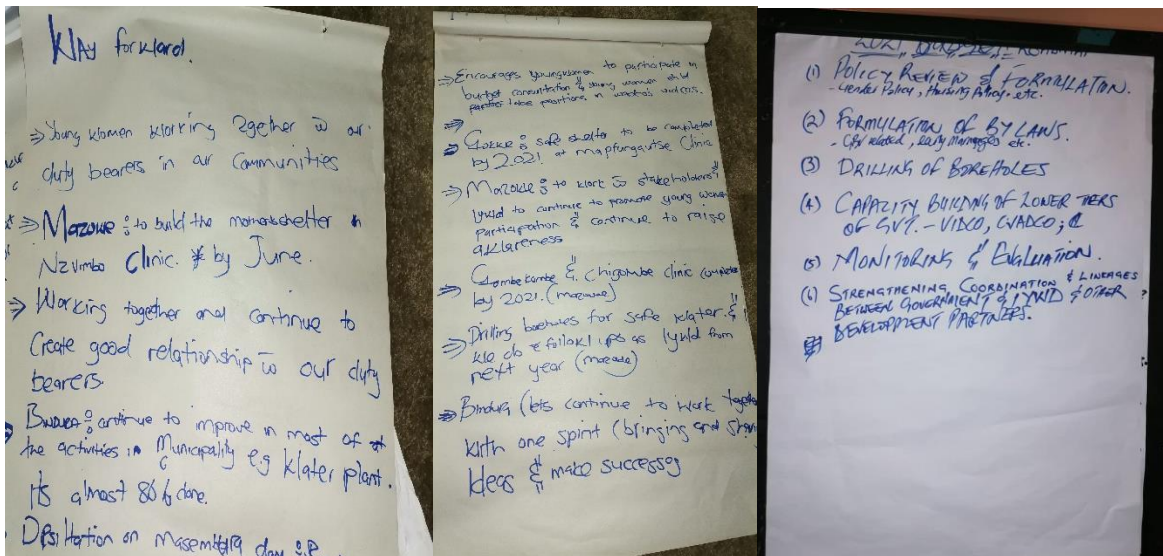 Way forward.
⇒ Young women working 2gether w̄ our
duty bearers in our communities
⇒ Mazowe: to build the mothershelter in
Nzvimbo Clinic. by June.
⇒ Working together and continue to
Create good relationship w̄ our duty
bearers.
Bindura: continue to improve in most of
the activities in Municipality eg water plant.
Its almost 80% done.
Desiltation on dam
⇒ Encourages young women to participate in
budget consultation & young women
positions in
Gokwe: safe shelter to be completed
by 2021. at mapfungautse Clinic
⇒ Mazowe: to work w̄ stakeholders &
lywd to continue to promote young women
participation & continue to raise
awareness
& Chigombe clinic
by 2021. (mazowe)
⇒ Drilling for safe water. &
we do follow ups as lywd from
next year (mazowe)
⇒ Bindura (lets continue to work
with one spirit (bringing and
Ideas & make success
2021
(1) POLICY REVIEW & FORMULATION.
- Gender Policy, Housing Policy, etc.
(2) FORMULATION OF BY LAWS.
- GBV related, early marriages etc.
(3) DRILLING OF BOREHOLES
(4) CAPACITY BUILDING OF LOWER TIERS
OF GVT. - VIDCO, WADCO;
(5) MONITORING & EVALUATION.
(6) STRENGTHENING COORDINATION & LINKAGES
BETWEEN GOVERNMENT & IYWD & OTHER
DEVELOPMENT PARTNERS.